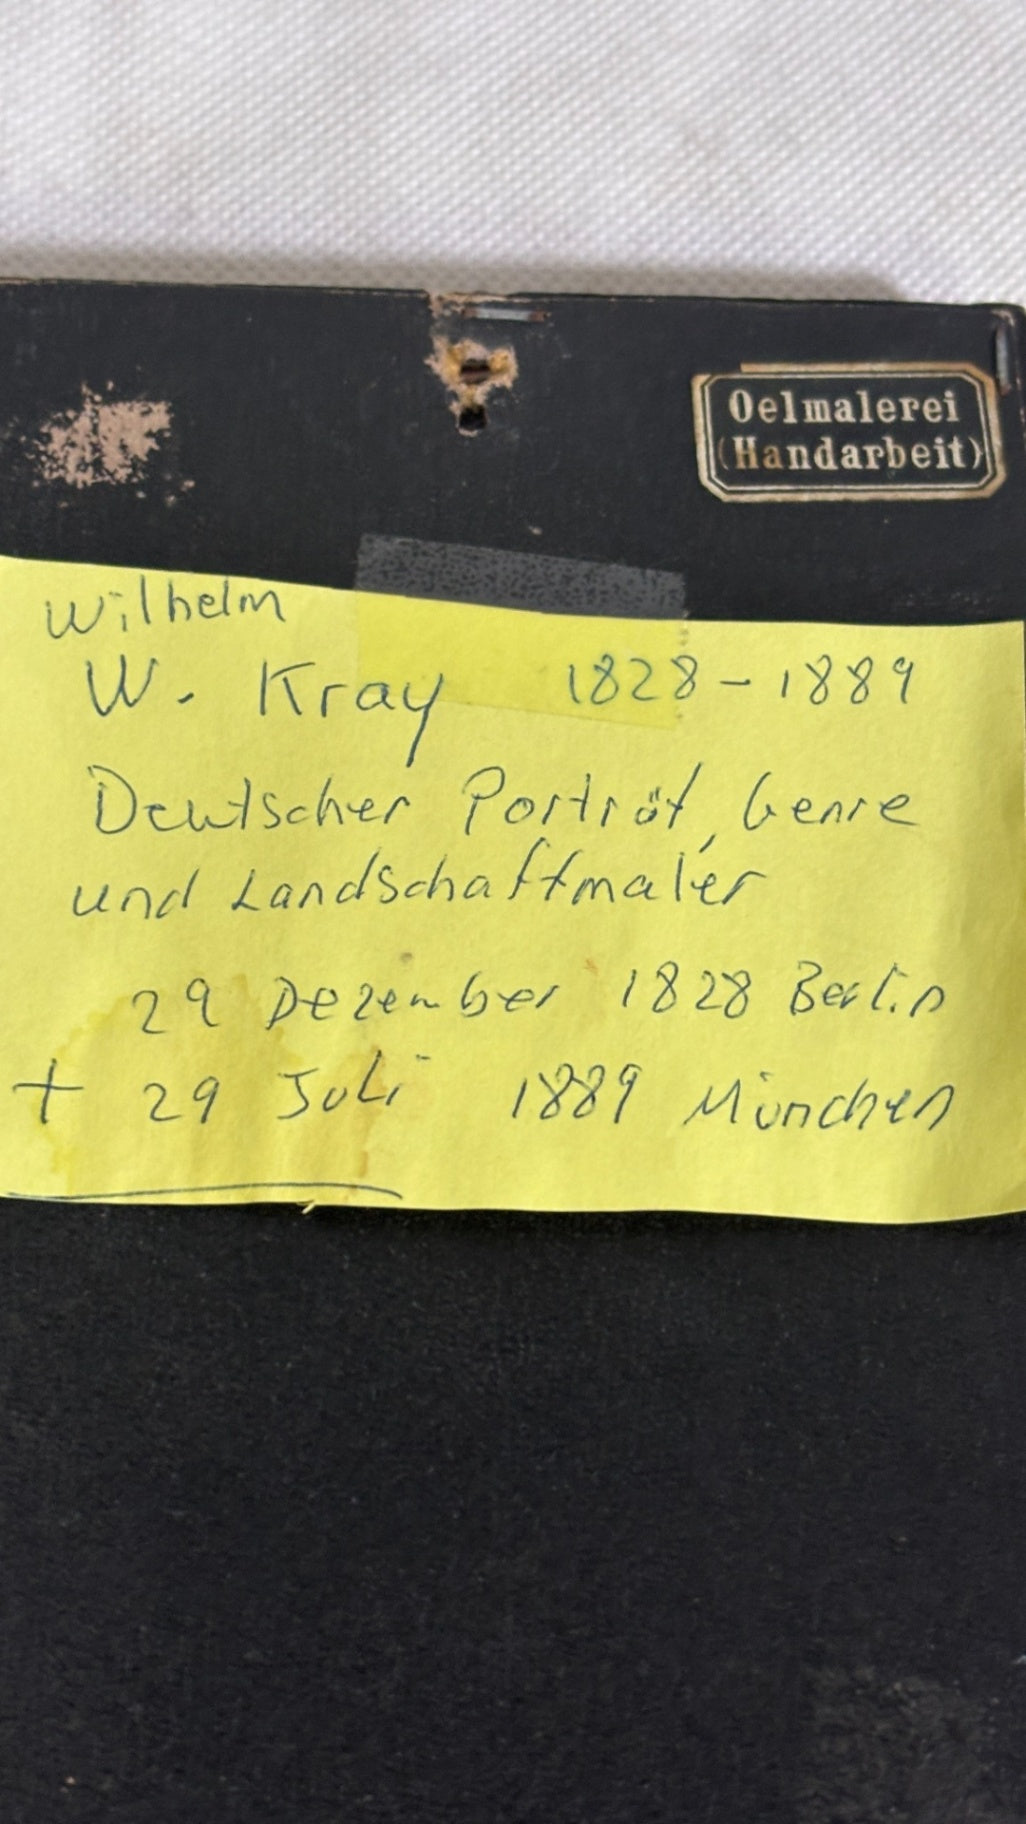 Oelmalerei
(Handarbeit)
Wilhelm
W. Kray 1828-1889
Deutscher Porträt, Genre
und Landschaftmaler
29 Dezember 1828 Berlin
+ 29 Juli 1889 München